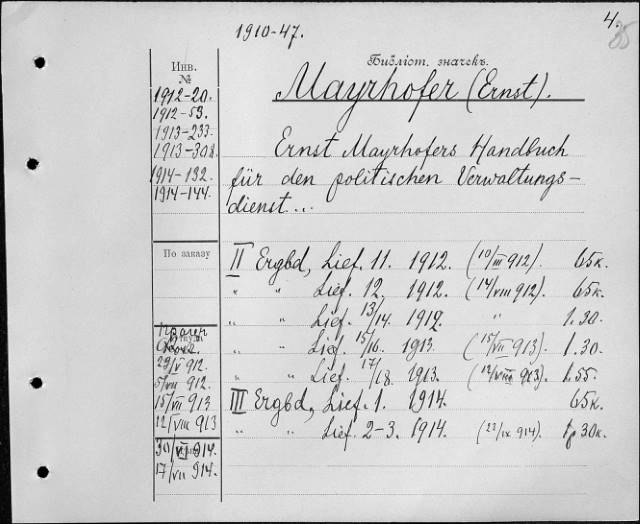 1910-47.
4.
35
Инв.
№
Библіот. значекъ.
1912-20.
1912-53.
1913-233.
1913-308.
1914-132.
1914-144.
Mayrhofer (Ernst).
Ernst Mayrhofers Handbuch
für den politischen Verwaltungs-
dienst...
По заказу
II Ergbd, Lief. 11. 1912. (10/III 912). 65к.
" " Lief. 12, 1912. (14/VIII 912). 65к.
" " Lief. 13/14. 1912. " 1.30.
" " Lief. 15/16. 1913. (15/VII 913). 1.30.
" " Lief. 17/18. 1913. (12/VIII 913). 1.55.
III Ergbd, Lief. 1. 1914. 65к.
" " Lief. 2-3. 1914. (22/IX 914). 1р 30к.
29/V 912.
5/VII 912.
15/VII 913
12/VIII 913
30/VI 914.
17/VII 914.